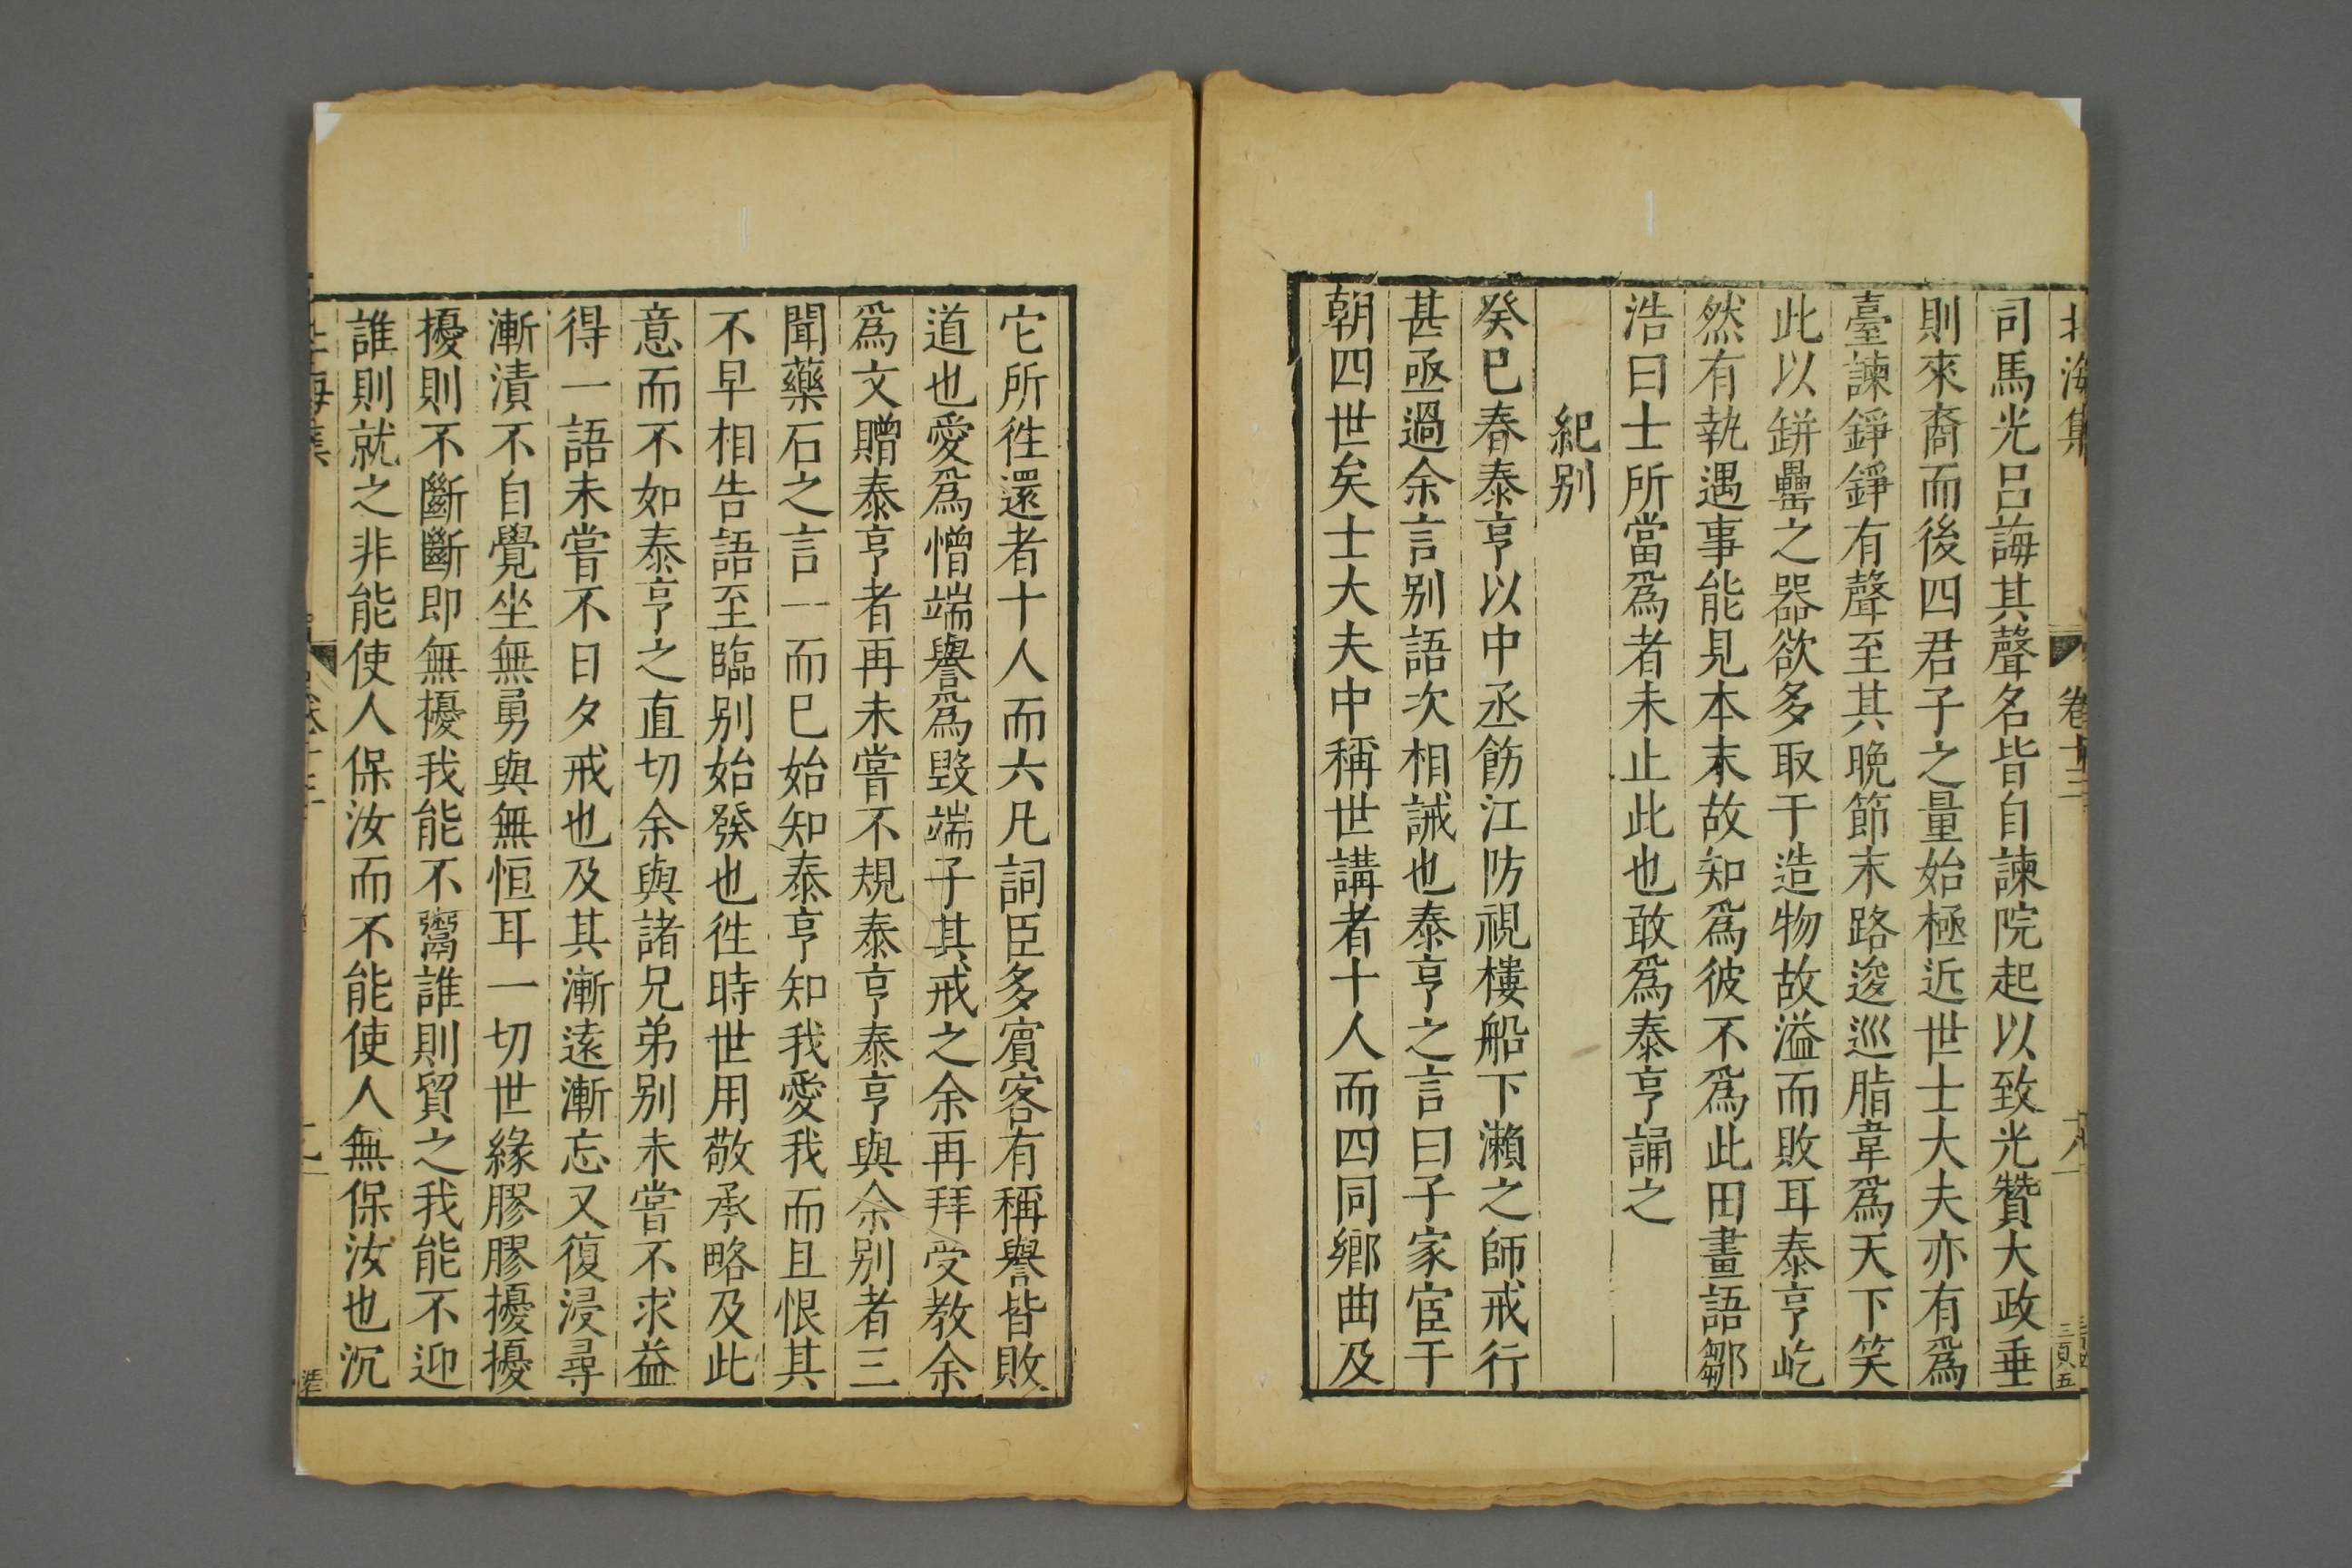 北海集 卷十三 十八
司馬光呂誨其聲名皆自諫院起以致光贊大政垂
則來裔而後四君子之量始極近世士大夫亦有為
臺諫錚錚有聲至其晚節末路逡巡脂韋為天下笑
此以缾罍之器欲多取于造物故溢而敗耳泰亨屹
然有執遇事能見本末故知為彼不為此田畫語鄒
浩曰士所當為者未止此也敢為泰亨誦之
紀別
癸巳春泰亨以中丞飭江防視樓船下瀨之師戒行
甚亟過余言別語次相誡也泰亨之言曰子家宦于
朝四世矣士大夫中稱世講者十人而四同鄉曲及
它所徃還者十人而六凡詞臣多賔客有稱譽皆敗
道也愛為憎端譽為毀端子其戒之余再拜受教余
為文贈泰亨者再未嘗不規泰亨泰亨與余別者三
聞藥石之言一而巳始知泰亨知我愛我而且恨其
不早相告語至臨別始發也徃時世用敬承略及此
意而不如泰亨之直切余與諸兄弟別未嘗不求益
得一語未嘗不日夕戒也及其漸遠漸忘又復浸尋
漸漬不自覺坐無勇與無恒耳一切世緣膠膠擾擾
擾則不斷斷即無擾我能不鬻誰則貿之我能不迎
誰則就之非能使人保汝而不能使人無保汝也沉